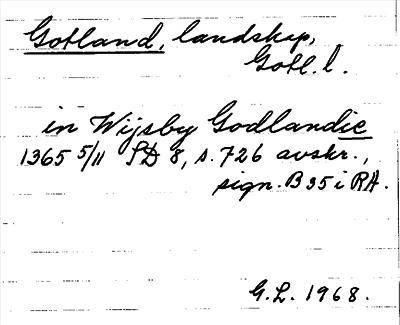 Gotland, landskap,
Gotl. l.
in Wijsby Godlandie
1365 5/11 SD 8, s. 726 avskr.,
sign. B 35 i RA.
G.L. 1968.